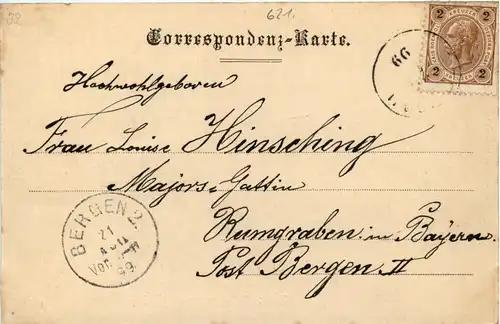 621.
Correspondenz-Karte.
2 2
2 2
99
Hochwohlgeboren
Frau Louise Hinsching
Majors-Gattin
Rumgraben in Bayern
Post Bergen II
BERGEN 2.
21
VOR
99